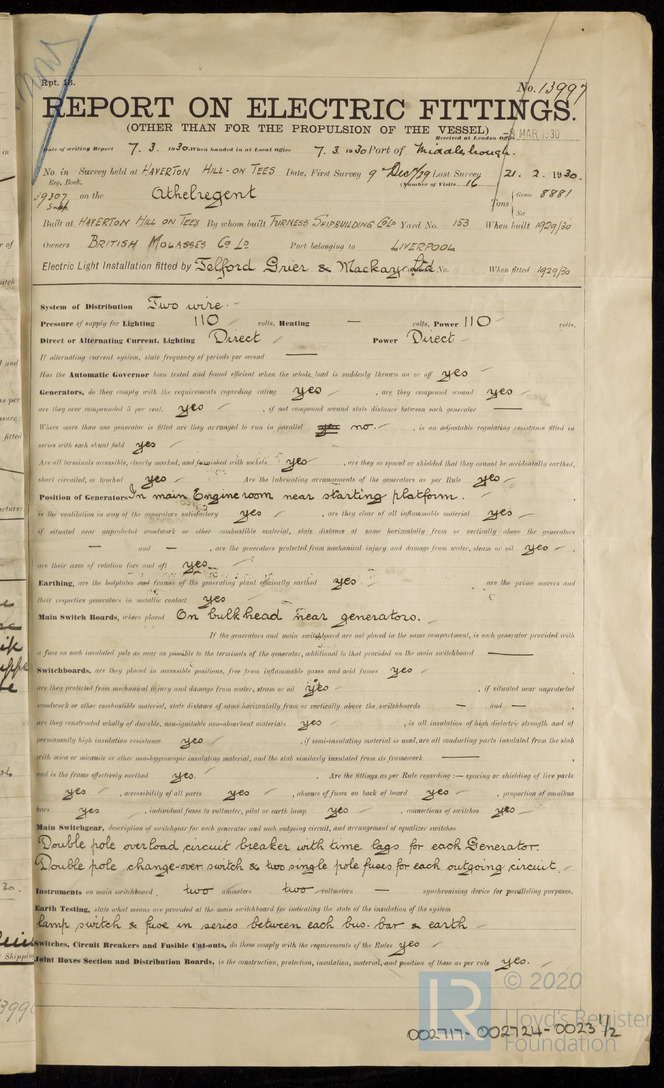 Rpt. 13.
No. 13997
REPORT ON ELECTRIC FITTINGS.
(OTHER THAN FOR THE PROPULSION OF THE VESSEL)
Received at London Office MAR 1930
Date of writing Report 7. 3. 1930. When handed in at Local Office 7. 3. 1930 Port of Middlesbrough.
No. in Survey held at HAVERTON HILL-ON TEES Date, First Survey 9 Dec/29 Last Survey 21. 2. 1930.
Reg. Book. (Number of Visits 16
on the Athelregent Tons Gross 8881
Net
Built at HAVERTON HILL ON TEES By whom built FURNESS SHIPBUILDING Co Ld Yard No. 153 When built 1929/30
Owners BRITISH MOLASSES Co Ld Port belonging to LIVERPOOL
Electric Light Installation fitted by Telford Grier & Mackay Ltd No. When fitted 1929/30
System of Distribution Two wire.
Pressure of supply for Lighting 110 volts, Heating — volts, Power 110 volts.
Direct or Alternating Current, Lighting Direct Power Direct
If alternating current system, state frequency of periods per second —
Has the Automatic Governor been tested and found efficient when the whole load is suddenly thrown on or off yes
Generators, do they comply with the requirements regarding rating yes , are they compound wound yes
are they over compounded 5 per cent. yes , if not compound wound state distance between each generator —
Where more than one generator is fitted are they arranged to run in parallel yes no. , is an adjustable regulating resistance fitted in
series with each shunt field yes
Are all terminals accessible, clearly marked, and furnished with sockets yes , are they so spaced or shielded that they cannot be accidentally earthed,
short circuited, or touched yes Are the lubricating arrangements of the generators as per Rule yes
Position of Generators In main Engine room near starting platform.
is the ventilation in way of the generators satisfactory yes , are they clear of all inflammable material yes
if situated near unprotected woodwork or other combustible material, state distance of same horizontally from or vertically above the generators
— and — , are the generators protected from mechanical injury and damage from water, steam or oil yes
are their axes of rotation fore and aft yes
Earthing, are the bedplates and frames of the generating plant efficiently earthed yes are the prime movers and
their respective generators in metallic contact yes
Main Switch Boards, where placed On bulkhead near generators.
If the generators and main switchboard are not placed in the same compartment, is each generator provided with
a fuse on each insulated pole as near as possible to the terminals of the generator, additional to that provided on the main switchboard —
Switchboards, are they placed in accessible positions, free from inflammable gases and acid fumes yes
are they protected from mechanical injury and damage from water, steam or oil yes , if situated near unprotected
woodwork or other combustible material, state distance of same horizontally from or vertically above the switchboards — and —
are they constructed wholly of durable, non-ignitable non-absorbent materials yes , is all insulation of high dielectric strength and of
permanently high insulation resistance yes , if semi-insulating material is used, are all conducting parts insulated from the slab
with mica or micanite or other non-hygroscopic insulating material, and the slab similarly insulated from its framework —
and is the frame effectively earthed yes. Are the fittings as per Rule regarding:— spacing or shielding of live parts
yes , accessibility of all parts yes , absence of fuses on back of board yes , proportion of omnibus
bars yes , individual fuses to voltmeter, pilot or earth lamp yes , connections of switches yes
Main Switchgear, description of switchgear for each generator and each outgoing circuit, and arrangement of equalizer switches
Double pole overload circuit breaker with time lags for each Generator.
Double pole change-over switch & two single pole fuses for each outgoing circuit.
Instruments on main switchboard two ammeters two voltmeters — synchronising device for paralleling purposes.
Earth Testing, state what means are provided at the main switchboard for indicating the state of the insulation of the system
lamp switch & fuse in series between each bus-bar & earth
Switches, Circuit Breakers and Fusible Cut-outs, do these comply with the requirements of the Rules yes
Joint Boxes Section and Distribution Boards, is the construction, protection, insulation, material, and position of these as per rule yes.
© 2020
LR
Lloyd's Register
Foundation
002717-002724-0023 1/2